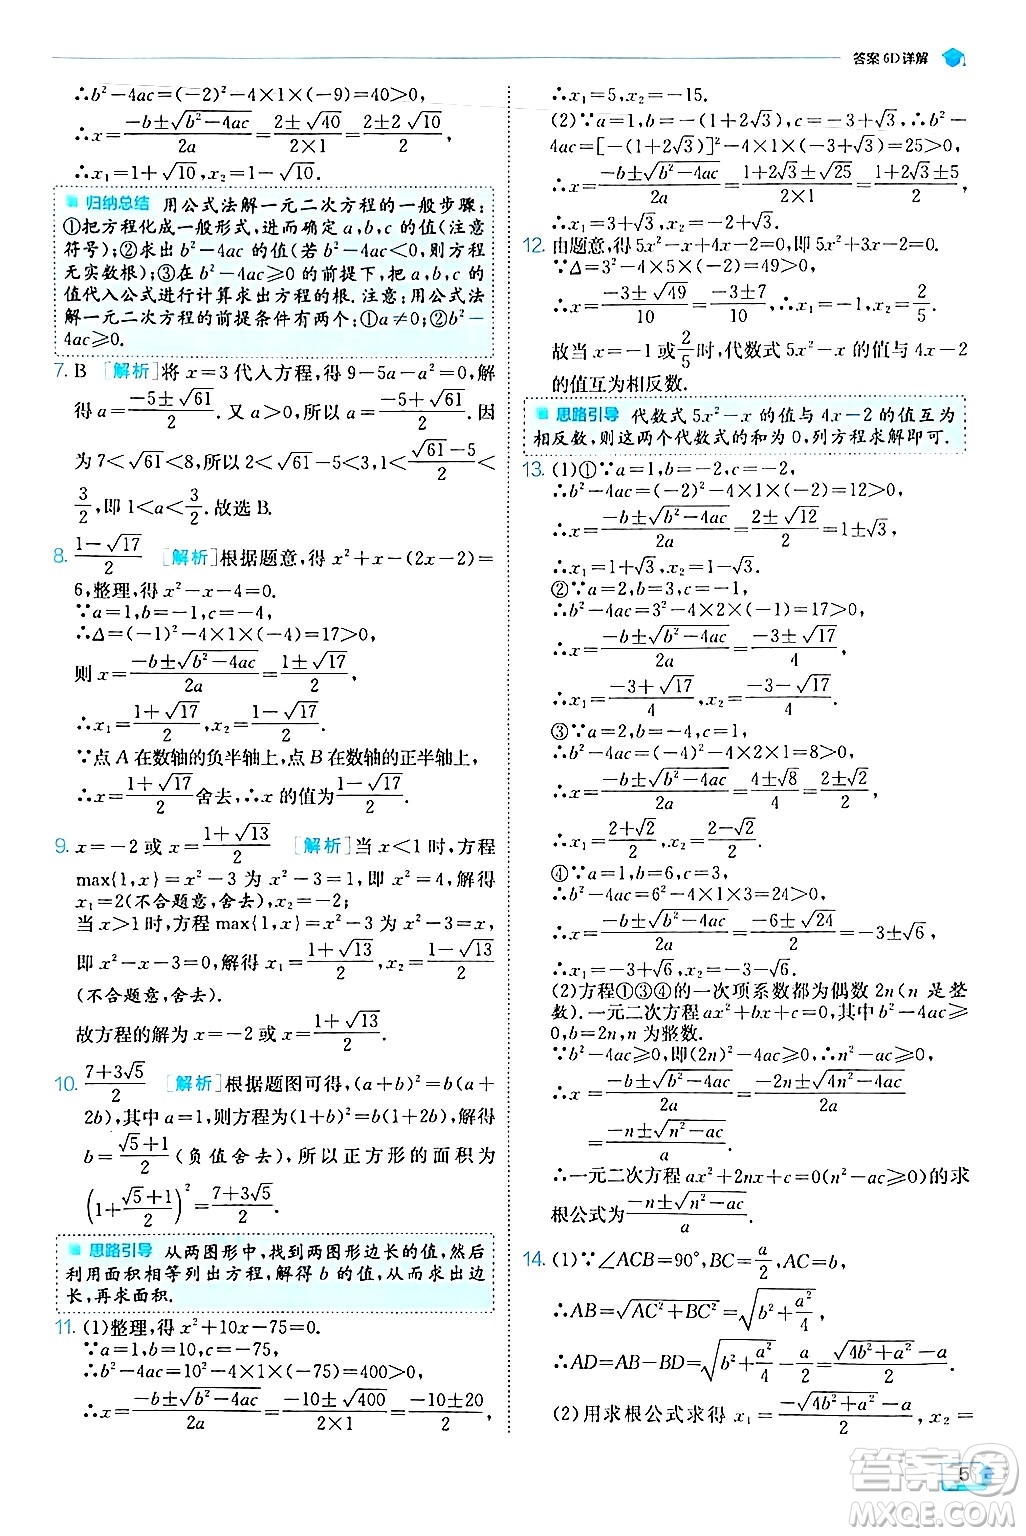 答案 6D 详解
∴b²-4ac=(-2)²-4×1×(-9)=40>0,
∴x=(-b±√(b²-4ac))/2a=(2±√40)/(2×1)=(2±2√10)/2,
∴x₁=1+√10,x₂=1-√10.
归纳总结 用公式法解一元二次方程的一般步骤:
①把方程化成一般形式,进而确定a,b,c的值(注意
符号);②求出b²-4ac的值(若b²-4ac<0,则方程
无实数根);③在b²-4ac≥0的前提下,把a,b,c的
值代入公式进行计算求出方程的根.注意:用公式法
解一元二次方程的前提条件有两个:①a≠0;②b²-
4ac≥0.
7. B [解析]将x=3代入方程,得9-5a-a²=0,解
得a=(-5±√61)/2.又a>0,所以a=(-5+√61)/2.因
为7<√61<8,所以2<√61-5<3,所以1<(√61-5)/2<
3/2,即1<a<3/2.故选B.
8. (1-√17)/2 [解析]根据题意,得x²+x-(2x-2)=
6,整理,得x²-x-4=0.
∵a=1,b=-1,c=-4,
∴Δ=(-1)²-4×1×(-4)=17>0,
则x=(-b±√(b²-4ac))/2a=(1±√17)/2,
∴x₁=(1+√17)/2,x₂=(1-√17)/2.
∵点A在数轴的负半轴上,点B在数轴的正半轴上,
∴x=(1+√17)/2舍去,∴x的值为(1-√17)/2.
9. x=-2或x=(1+√13)/2 [解析]当x<1时,方程
max{1,x}=x²-3为x²-3=1,即x²=4,解得
x₁=2(不合题意,舍去),x₂=-2;
当x>1时,方程max{1,x}=x²-3为x²-3=x,
即x²-x-3=0,解得x₁=(1+√13)/2,x₂=(1-√13)/2
(不合题意,舍去).
故方程的解为x=-2或x=(1+√13)/2.
10. (7+3√5)/2 [解析]根据题图可得,(a+b)²=b(a+
2b),其中a=1,则方程为(1+b)²=b(1+2b),解得
b=(√5+1)/2(负值舍去),所以正方形的面积为
(1+(√5+1)/2)²=(7+3√5)/2.
思路引导 从两图形中,找到两图形边长的值,然后
利用面积相等列出方程,解得b的值,从而求出边
长,再求面积.
11. (1)整理,得x²+10x-75=0.
∵a=1,b=10,c=-75,
∴b²-4ac=10²-4×1×(-75)=400>0,
∴x=(-b±√(b²-4ac))/2a=(-10±√400)/(2×1)=(-10±20)/2,
∴x₁=5,x₂=-15.
(2)∵a=1,b=-(1+2√3),c=-3+√3,∴b²-
4ac=[-(1+2√3)]²-4×1×(-3+√3)=25>0,
∴x=(-b±√(b²-4ac))/2a=(1+2√3±√25)/(2×1)=(1+2√3±5)/2,
∴x₁=3+√3,x₂=-2+√3.
12. 由题意,得5x²-x+4x-2=0,即5x²+3x-2=0.
∵Δ=3²-4×5×(-2)=49>0,
∴x=(-3±√49)/10=(-3±7)/10,∴x₁=-1,x₂=2/5.
故当x=-1或2/5时,代数式5x²-x的值与4x-2
的值互为相反数.
思路引导 代数式5x²-x的值与4x-2的值互为
相反数,则这两个代数式的和为0,列方程求解即可.
13. (1)①∵a=1,b=-2,c=-2,
∴b²-4ac=(-2)²-4×1×(-2)=12>0,
∴x=(-b±√(b²-4ac))/2a=(2±√12)/2=1±√3,
∴x₁=1+√3,x₂=1-√3.
②∵a=2,b=3,c=-1,
∴b²-4ac=3²-4×2×(-1)=17>0,
∴x=(-b±√(b²-4ac))/2a=(-3±√17)/4,
∴x₁=(-3+√17)/4,x₂=(-3-√17)/4.
③∵a=2,b=-4,c=1,
∴b²-4ac=(-4)²-4×2×1=8>0,
∴x=(-b±√(b²-4ac))/2a=(4±√8)/4=(2±√2)/2,
∴x₁=(2+√2)/2,x₂=(2-√2)/2.
④∵a=1,b=6,c=3,
∴b²-4ac=6²-4×1×3=24>0,
∴x=(-b±√(b²-4ac))/2a=(-6±√24)/2=-3±√6,
∴x₁=-3+√6,x₂=-3-√6.
(2)方程①③④的一次项系数都为偶数2n(n是整
数).一元二次方程ax²+bx+c=0,其中b²-4ac≥
0,b=2n,n为整数.
∵b²-4ac≥0,即(2n)²-4ac≥0,∴n²-ac≥0,
∴x=(-b±√(b²-4ac))/2a=(-2n±2√(n²-ac))/2a
=(-n±√(n²-ac))/a.
∴一元二次方程ax²+2nx+c=0(n²-ac≥0)的求
根公式为(-n±√(n²-ac))/a.
14. (1)∵∠ACB=90°,BC=a/2,AC=b,
∴AB=√(AC²+BC²)=√(b²+a²/4),
∴AD=AB-BD=√(b²+a²/4)-a/2=(√(4b²+a²)-a)/2.
(2)用求根公式求得x₁=(-√(4b²+a²)-a)/2,x₂=
5
答案圈
MXQE.COM